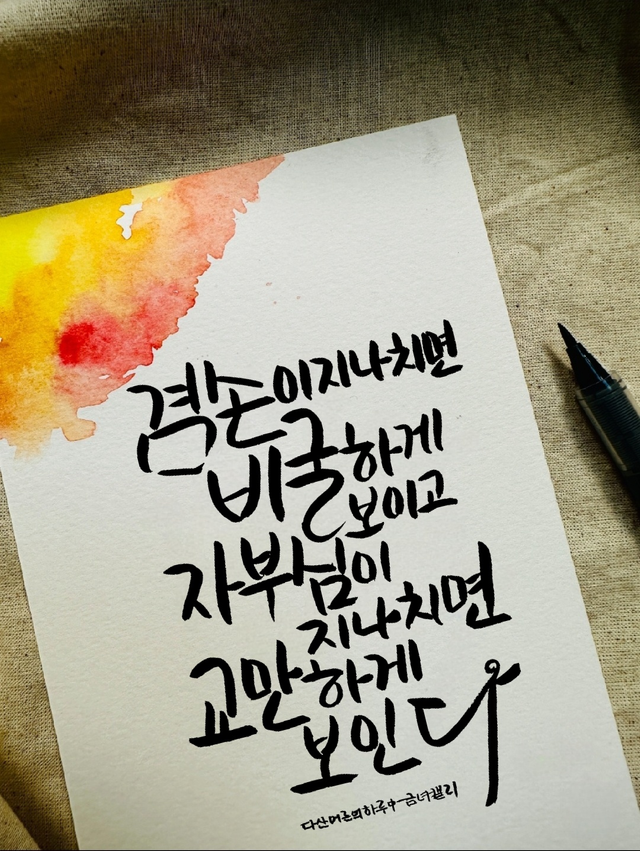 겸손이지나치면
비굴하게
보이고
자부심이
지나치면
교만하게
보인다
다산어른의하루中-금녀캘리